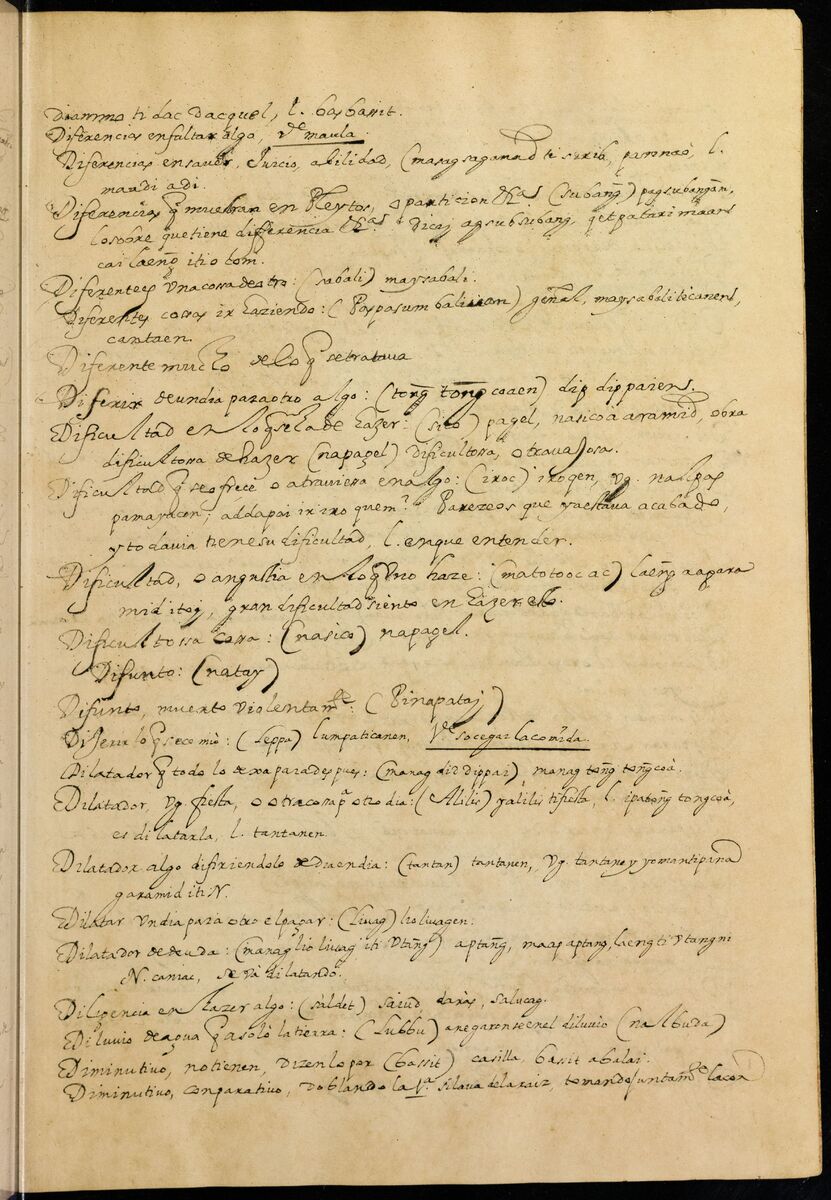 Diammo ti dac dacquel, l. basbassit.
Diferencias enfaltar algo, Vᵈᵉ maula.
Diferencias en sauer, Juicio, abilidad, (masagsaganad ti surib, pannao, l.
mandi adi.
Diferencias q̃ muestran en Pleytos, o particion &ᵃˢ (subang̃) pagsubang̃an,
lo sobre que tiene differencia &ᵃˢ. dicaj agsubsubang, q̃et patari maan
cai laeng̃ iti otom.
Diferente es vna cossa de otro: (sabali) maysabali.
Diferentes cossas ir haziendo: (Paspasumbalinan) gen̄al, maysabali ticanent,
cantaen.
Diferente mucho de lo q̃ se trataua
Diferir de un dia para otro algo: (tong̃ tong̃coaen) dip dippaiens.
Dificultad en lo q̃ se ha de hazer: (sico) pagel, nasicò a aramid, obra
dificultossa de hazer (napagel) dificultossa, o travajosa.
Dificultad q̃ se ofrece o atraviessa en algo: (iroc) iroqen, vg. nalpas
pamayacon, addapai ir iro quem? Parezeos que ya estava acabado,
y todavia tiene su dificultad, l. en que entender.
Dificultad, o angustia en lo q̃ vno haze: (matotooc ac) laeng̃ a apara
mid itoj, gran dificultad siento en hazer esto.
Dificultossa cossa: (nasico) napagel.
Difunto: (natay)
Difunto, muerto violentamᵗᵉ: (Pinapataj)
Dijerir lo q̃ se comiò: (Leppa) lumpaticanen, Vᵈᵉ socegar la comida.
Dilatador q̃ todo lo dexa para despues: (manag dip dippai) manag tong̃ tong̃coà.
Dilatador, vg. fiesta, o otra cosa pᵃ otro dia: (Alilis) yalilis ti fiesta, l. ipatong̃ tongcoà,
es dilatarla, l. tantanen.
Dilatador algo difiriendolo de dia en dia: (tantan) tantanen, vg. tantano y yomansipina
garamid iti N.
Dilatar vn dia para otro el pagar: (Liuag) lioliuagen.
Dilatador de deuda: (manag lio liuag iti vtang̃) aptang̃, maap aptang, laeng ti vtang ni
N. caniac, se và dilatando.
Diligencia en hazer algo: (saldet) saiud, daràs, salucag.
Diluuio de agua q̃ asolò la tierra: (Lubbu) anegaronse en el diluvio (nalbuda)
Diminutivo, no tienen, dizenlo por (bassit) casilla, bassit a balai.
Diminutivo, comparativo, doblando la 1ᵃ silava de la raiz, tomando juntamᵗᵉ la con